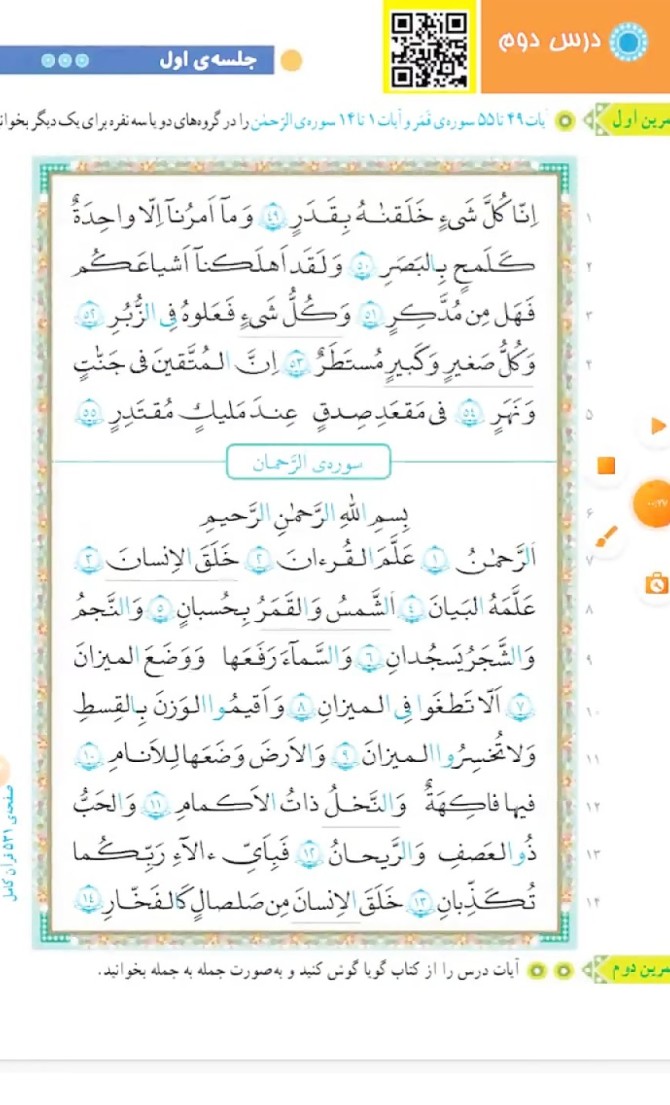 درس دوم
جلسه‌ی اول
آیات ۴۹ تا ۵۵ سوره‌ی قمر و آیات ۱ تا ۱۴ سوره‌ی الرّحمٰن را در گروه‌های دو یا سه نفره برای یک دیگر بخوان
۱ اِنّا كُلَّ شَیءٍ خَلَقنٰهُ بِقَدَرٍ ﴿٤٩﴾ وَ مآ اَمرُنآ اِلّا واحِدَةٌ
۲ كَلَمحٍ بِالبَصَرِ ﴿٥٠﴾ وَ لَقَد اَهلَكنآ اَشیاعَكُم
۳ فَهَل مِن مُدَّكِرٍ ﴿٥١﴾ وَ كُلُّ شَیءٍ فَعَلوهُ فِی الزُّبُرِ ﴿٥٢﴾
۴ وَ كُلُّ صَغیرٍ وَ كَبیرٍ مُستَطَرٌ ﴿٥٣﴾ اِنَّ المُتَّقینَ فی جَنّٰتٍ
۵ وَ نَهَرٍ ﴿٥٤﴾ فی مَقعَدِ صِدقٍ عِندَ مَلیكٍ مُقتَدِرٍ ﴿٥٥﴾
سوره‌ی الرَّحمان
۶ بِسمِ اللّٰهِ الرَّحمٰنِ الرَّحیمِ
۷ اَلرَّحمٰنُ ﴿١﴾ عَلَّمَ القُرءانَ ﴿٢﴾ خَلَقَ الاِنسانَ ﴿٣﴾
۸ عَلَّمَهُ البَیانَ ﴿٤﴾ اَلشَّمسُ وَ القَمَرُ بِحُسبانٍ ﴿٥﴾ وَ النَّجمُ
۹ وَ الشَّجَرُ یَسجُدانِ ﴿٦﴾ وَ السَّمآءَ رَفَعَها وَ وَضَعَ المیزانَ
۱۰ ﴿٧﴾ اَلّا تَطغَوا فِی المیزانِ ﴿٨﴾ وَ اَقیمُوا الوَزنَ بِالقِسطِ
۱۱ وَ لا تُخسِرُوا المیزانَ ﴿٩﴾ وَ الاَرضَ وَضَعَها لِلاَنامِ ﴿١٠﴾
۱۲ فیها فاكِهَةٌ وَ النَّخلُ ذاتُ الاَكمامِ ﴿١١﴾ وَ الحَبُّ
۱۳ ذُو العَصفِ وَ الرَّیحانُ ﴿١٢﴾ فَبِاَیِّ ءالآءِ رَبِّكُما
۱۴ تُكَذِّبانِ ﴿١٣﴾ خَلَقَ الاِنسانَ مِن صَلصالٍ كَالفَخّارِ ﴿١٤﴾
صفحه‌ی ۵۳۱ قرآن کامل
آیات درس را از کتاب گویا گوش کنید و به‌صورت جمله به جمله بخوانید.